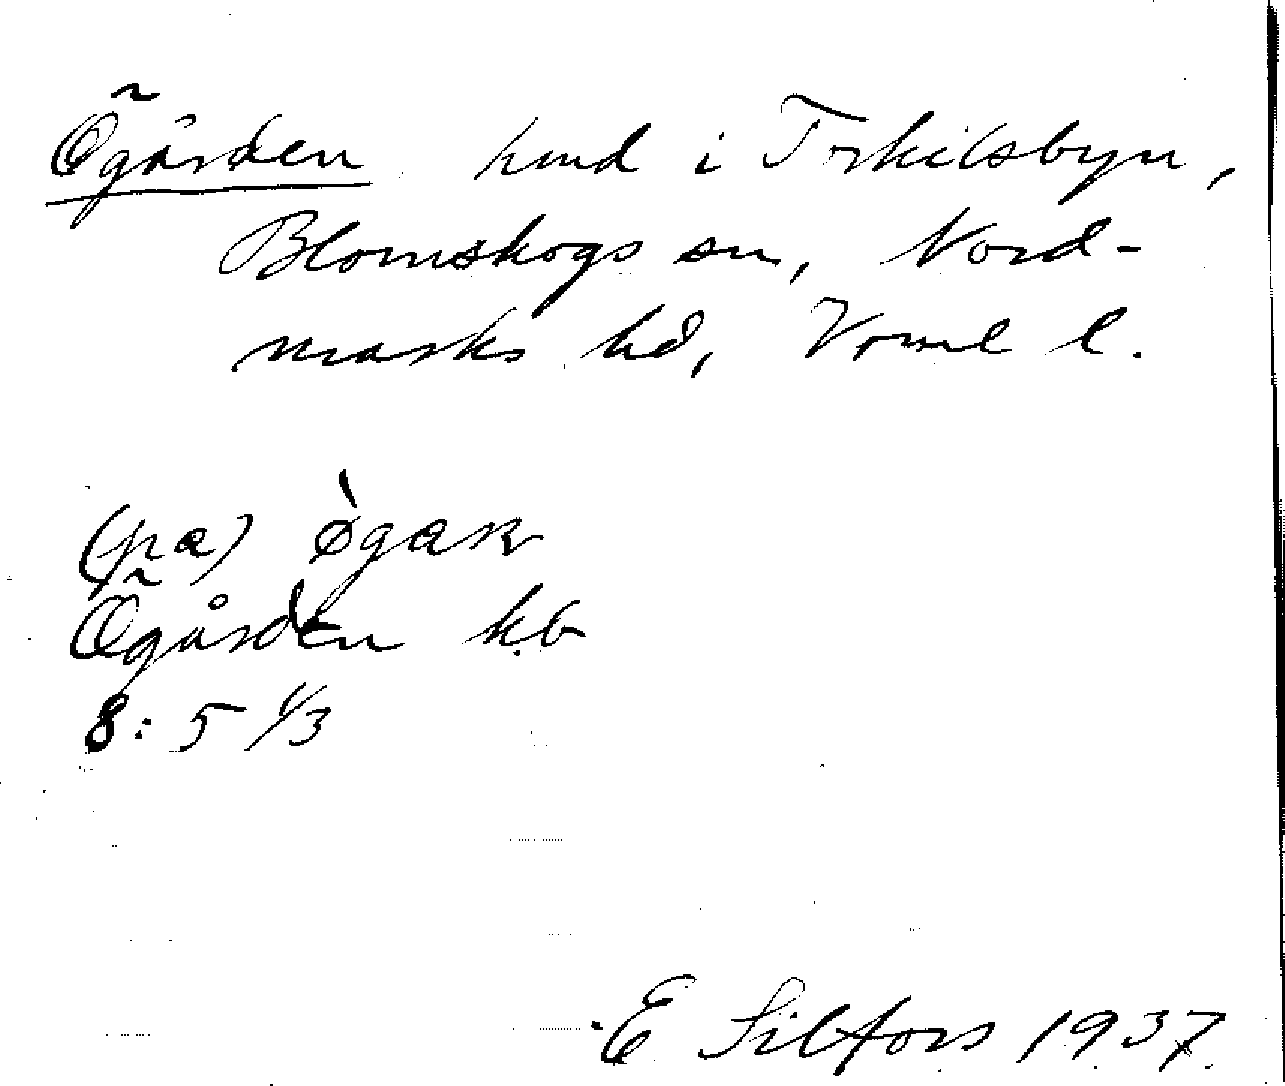 Ögården hmd i Torkilsbyn,
Blomskogs sn, Nord-
marks hd, Vrml l.
(pa) øgaɳ
Ögården kb
8:5 1/3
E Silfors 1937